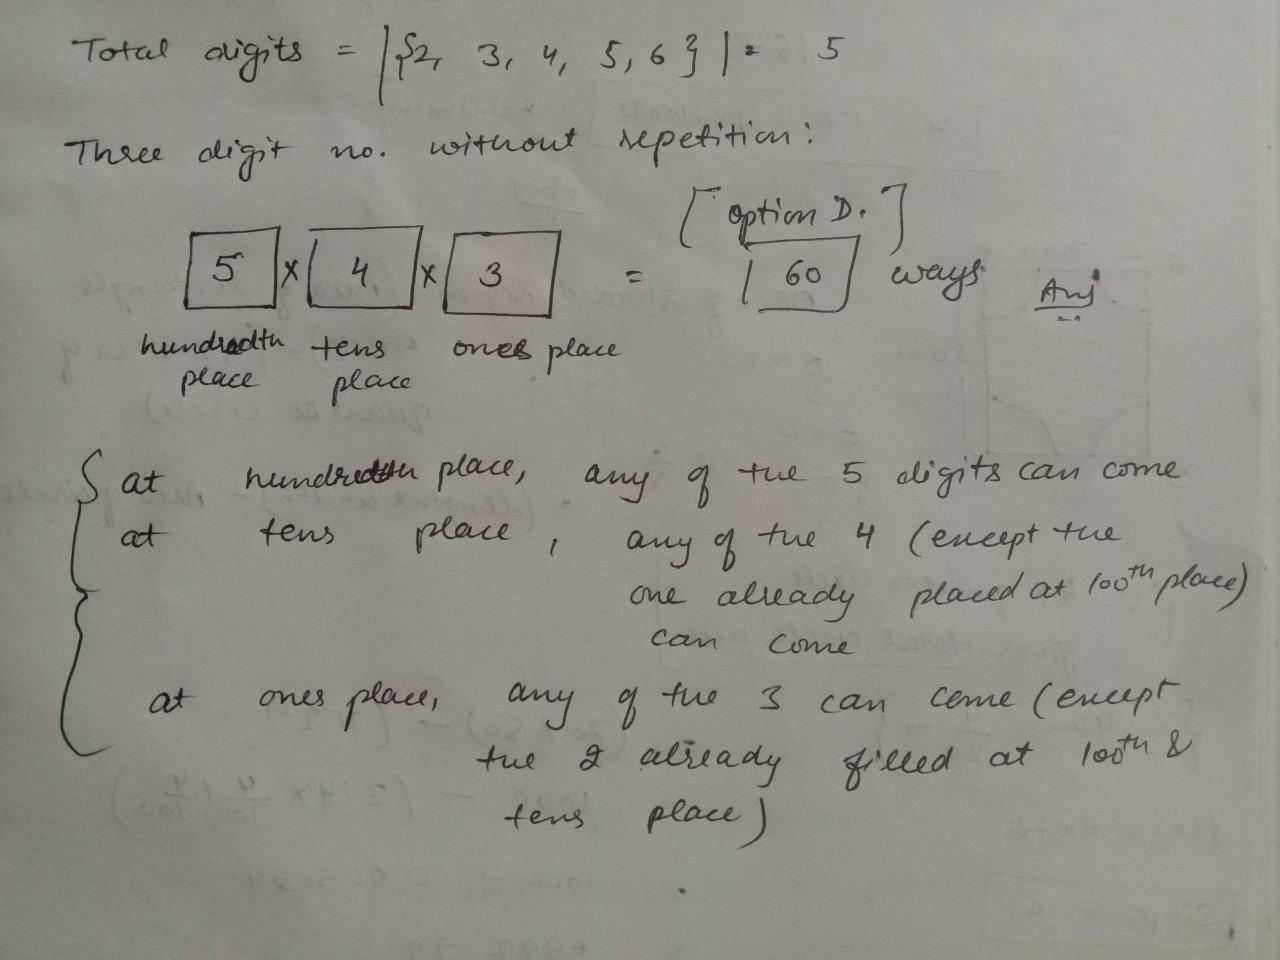 Total digits = |{2, 3, 4, 5, 6}| = 5
Three digit no. without repetition:
[option D.]
5 x 4 x 3 = 60 ways Ans
hundredth tens ones place
place place
at hundredth place, any of the 5 digits can come
at tens place, any of the 4 (except the
one already placed at 100th place)
can come
at ones place, any of the 3 can come (except
the 2 already filled at 100th &
tens place)